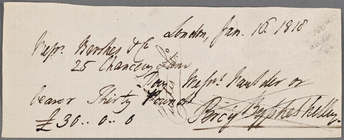 London, Jan. 16. 1818
Messrs. Brookes & Co.
25 Chancery Lane
Pay Messrs. Maulder or
bearer Thirty Pounds
£30..0..0
Percy Bysshe Shelley